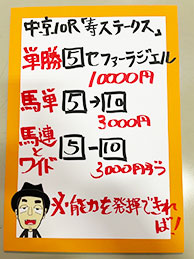 中京10R「寿ステークス」
単勝5セファーラジエル
10000円
馬単5→10
3000円
馬連と
ワイド5-10
3000円ずつ
メ・能力を発揮できれ
ば!